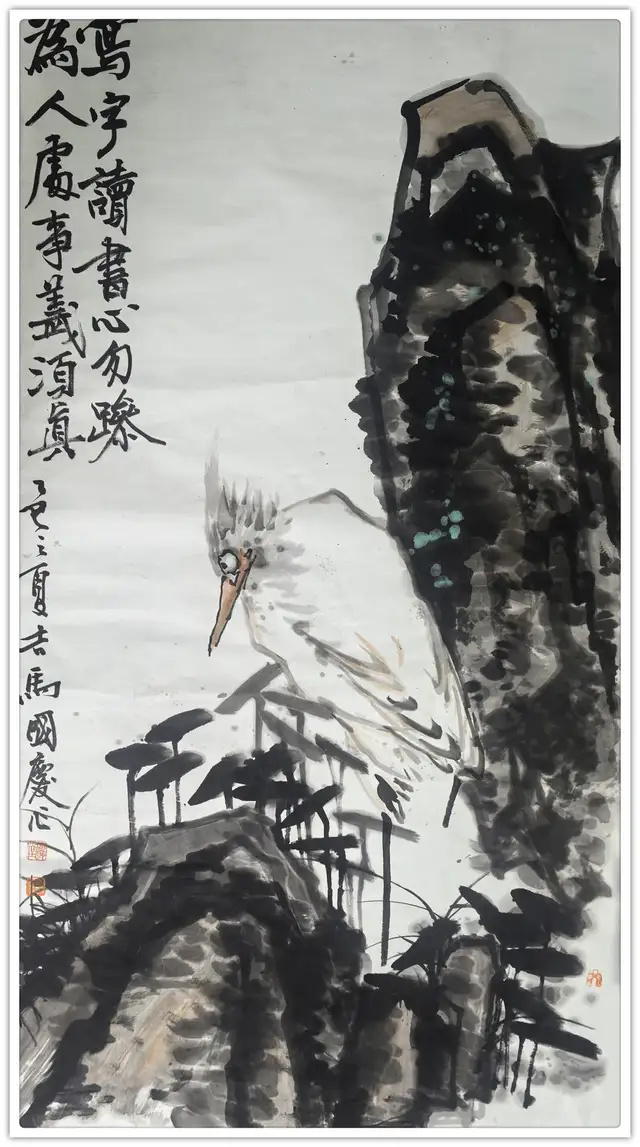 寫字讀書心勿躁
為人處事義須真
乙巳之夏馬國慶作